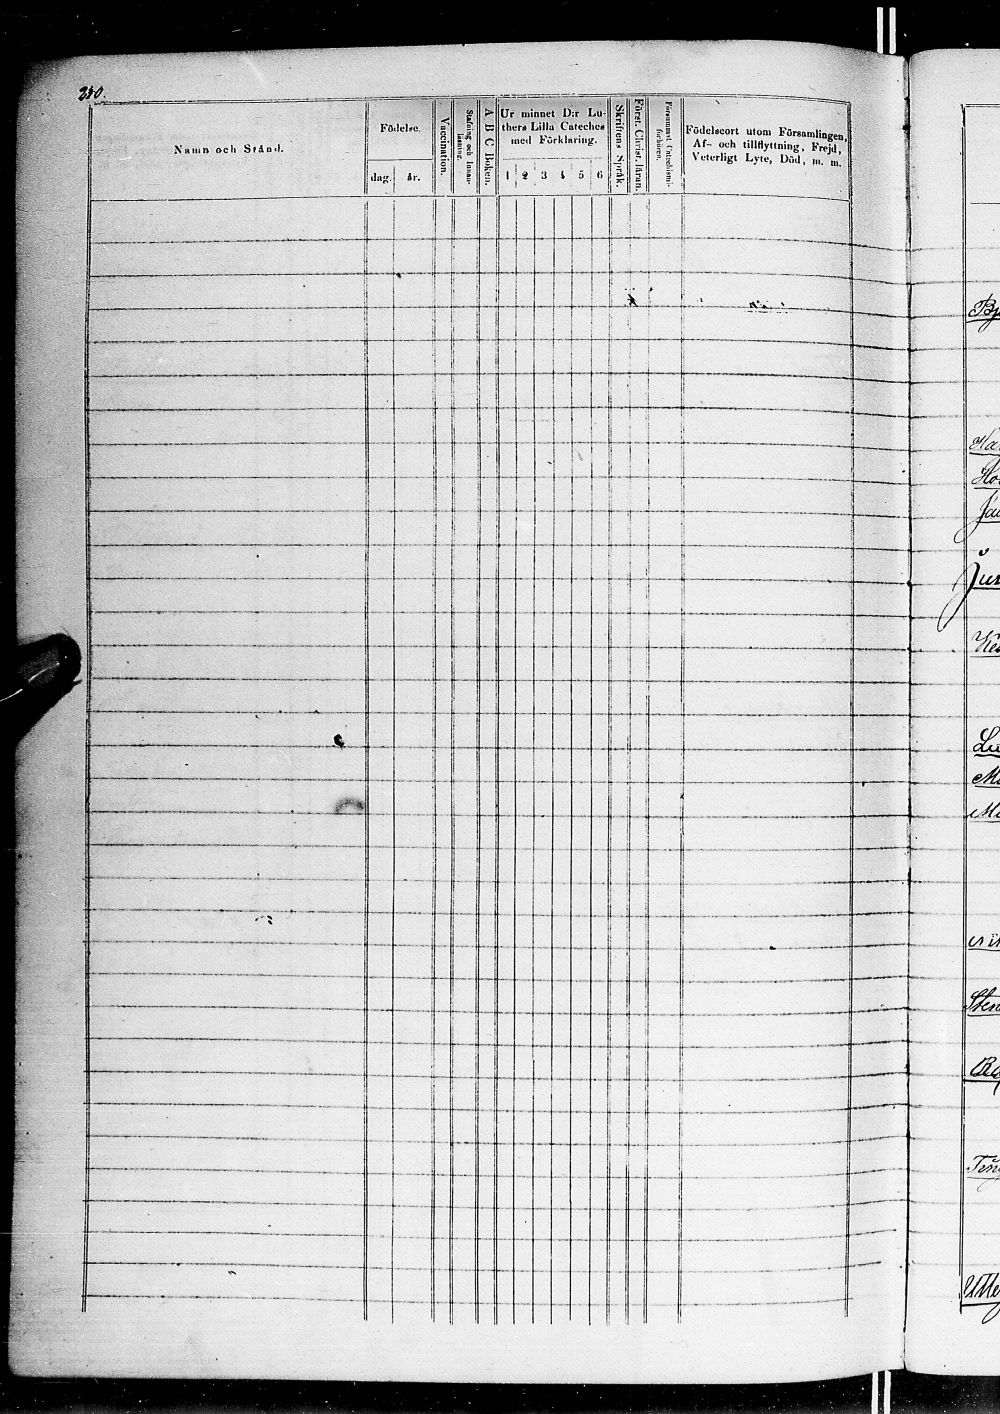 280.
Namn och Stånd.
Födelse.
dag.
år.
Vaccination.
Stafning och Innanläsning.
A B C Boken.
Ur minnet D:r Lu-
thers Lilla Cateches
med Förklaring.
1 2 3 4 5 6
Skriftens Språk.
Först. Christ. läran.
Försummat Catechismi-
förhören.
Födelseort utom Församlingen,
Af- och tillflyttning, Frejd,
Veterligt Lyte, Död, m. m.